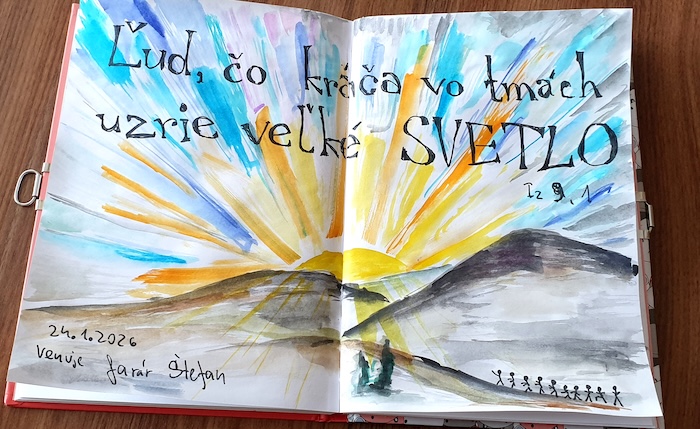 Ľud, čo kráča vo tmách
uzrie veľké SVETLO
Iz 9, 1
24.1.2026
Venuje farár Štefan